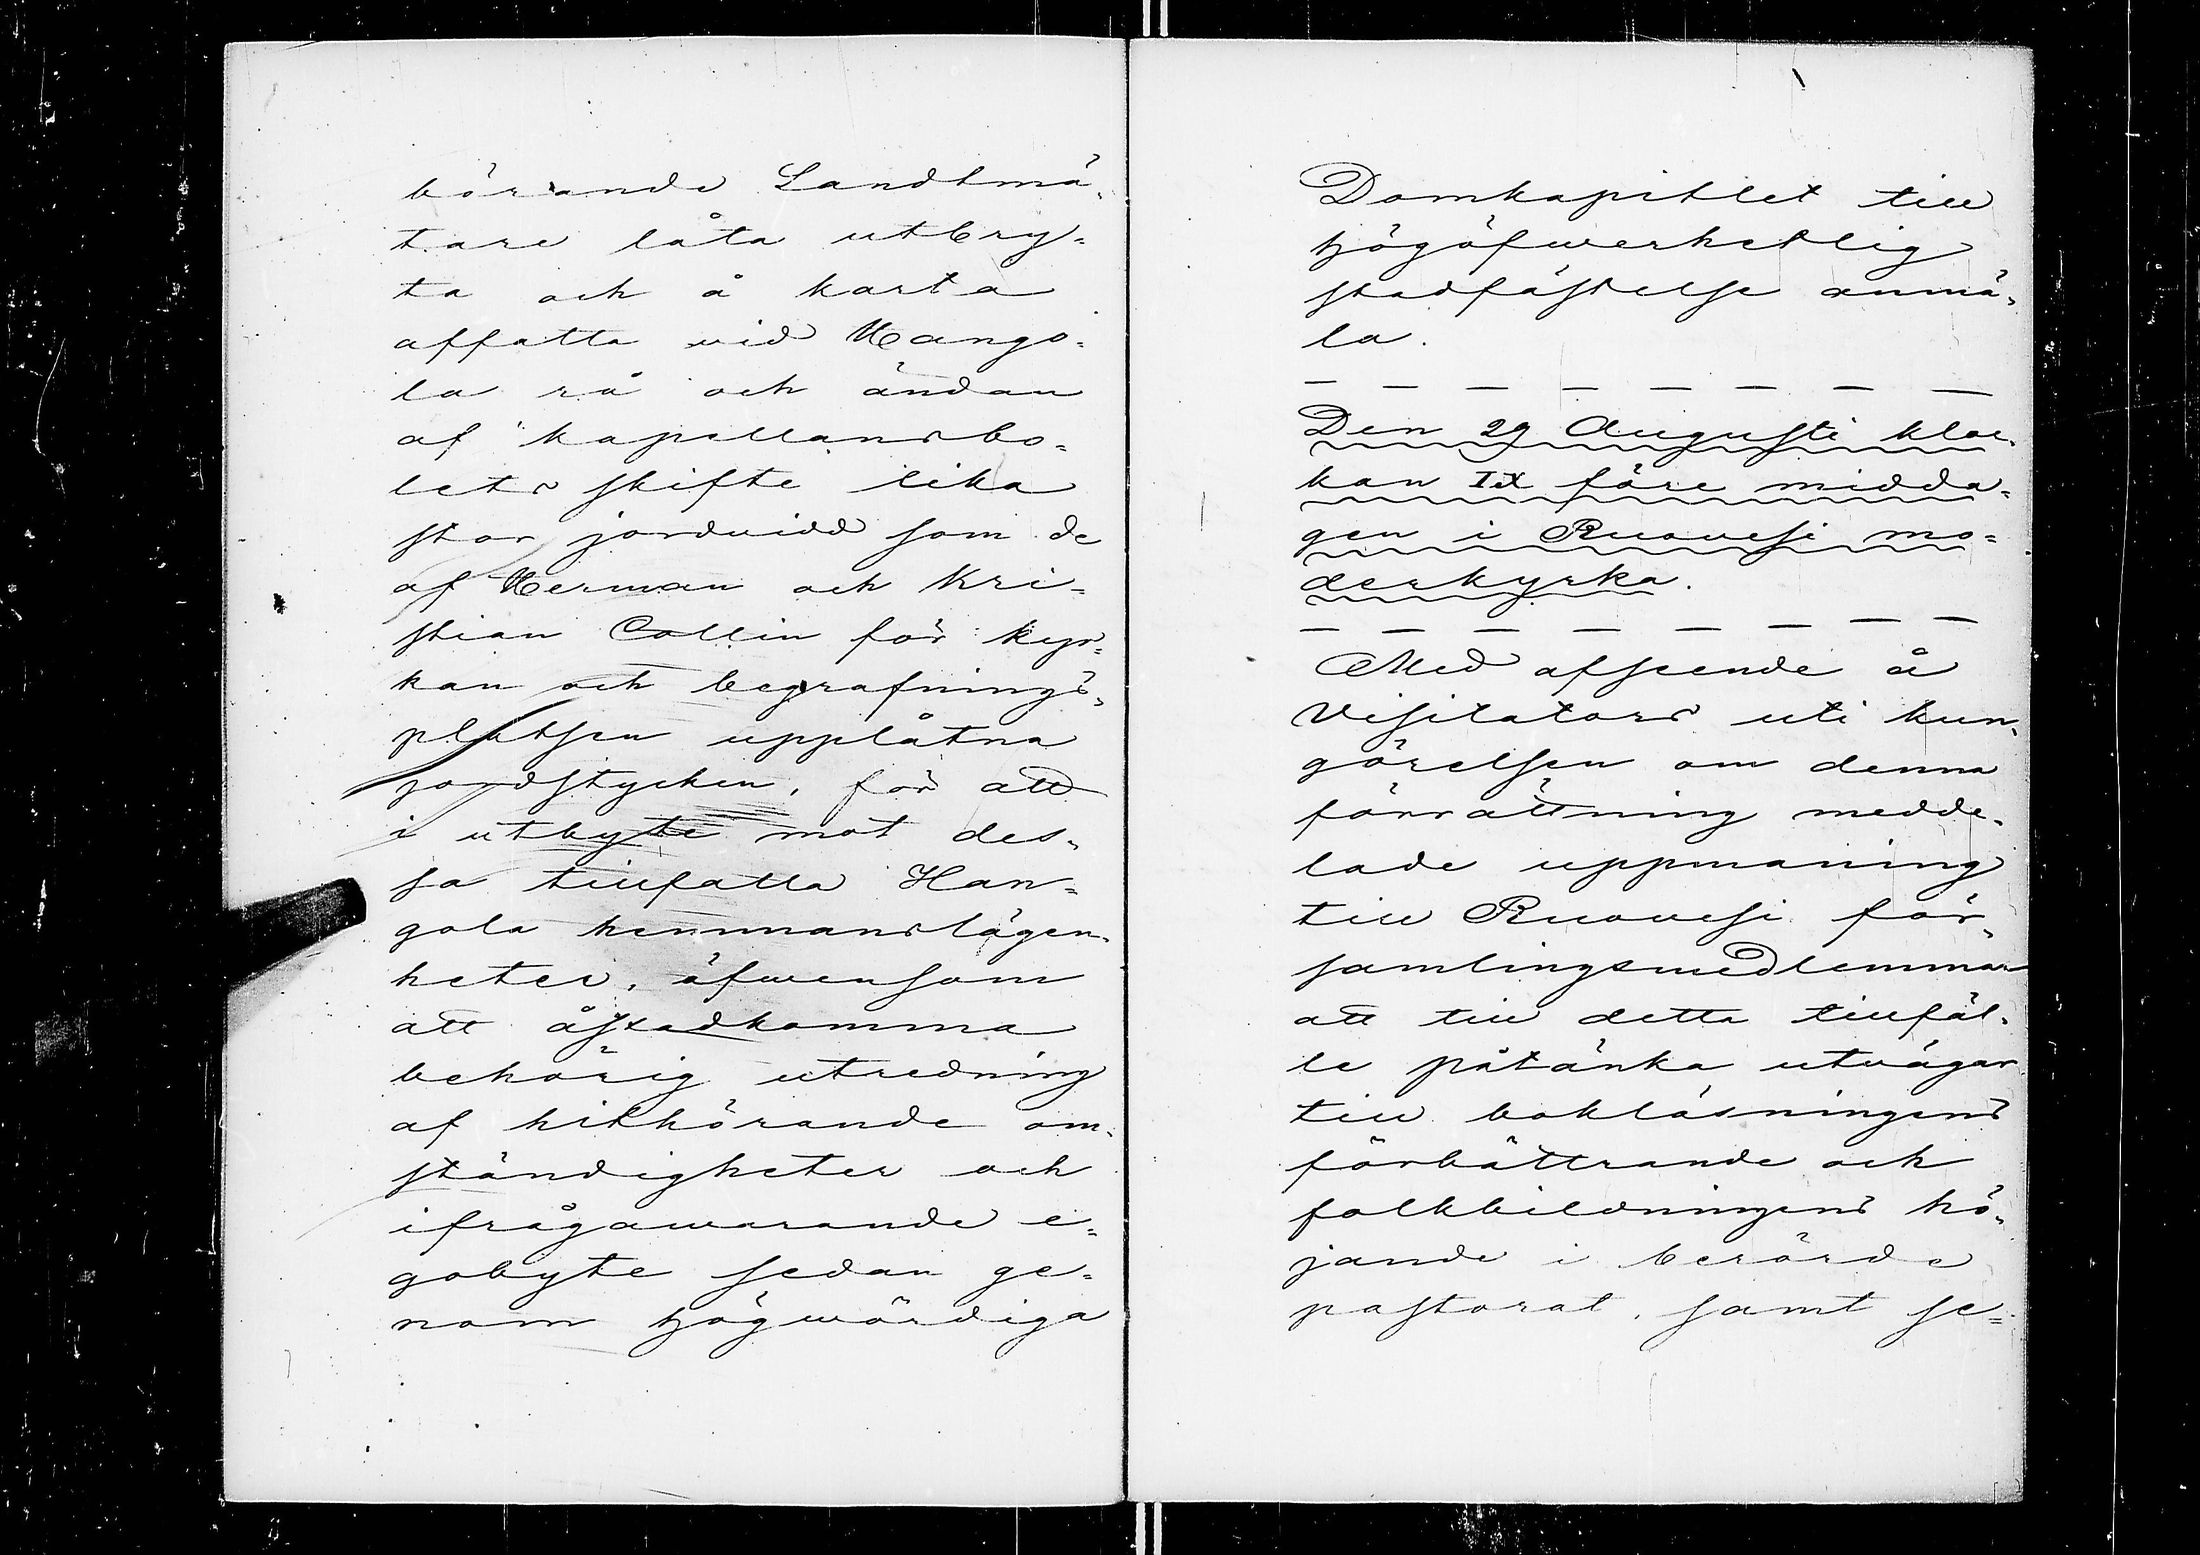 börande Landtmä-
tare låta utbry-
ta och å karta
affatta vid Hango-
la rå och ändan
af kapellansbo-
lets skifte lika
stor jordvidd som de
af Herman och Kri-
stian Collin för kyr-
kan och begrafnings-
platsen upplåtna
jordstycken, för att
i utbyte mot des-
sa tillfalla Han-
gola hemmanslägen-
heter, äfwensom
att åstadkomma
behörig utredning
af hithörande om-
ständigheter och
ifrågawarande e-
gobyte sedan ge-
nom högwördiga
Domkapitlet till
högöfwerhetlig
stadfästelse anmä-
la.
— — — — — — — —
Den 29 Augusti kloc-
kan IX före midda-
gen i Ruovesi mo-
derkyrka.
— — — — — — — —
Med afseende å
Visitators uti kun-
görelsen om denna
förrättning medde-
lade uppmaning
till Ruovesi för-
samlingsmedlemmar
att till detta tillfäl-
le påtänka utvägar
till bokläsningens
förbättrande och
folkbildningens hö-
jande i berörda
pastorat, samt se-